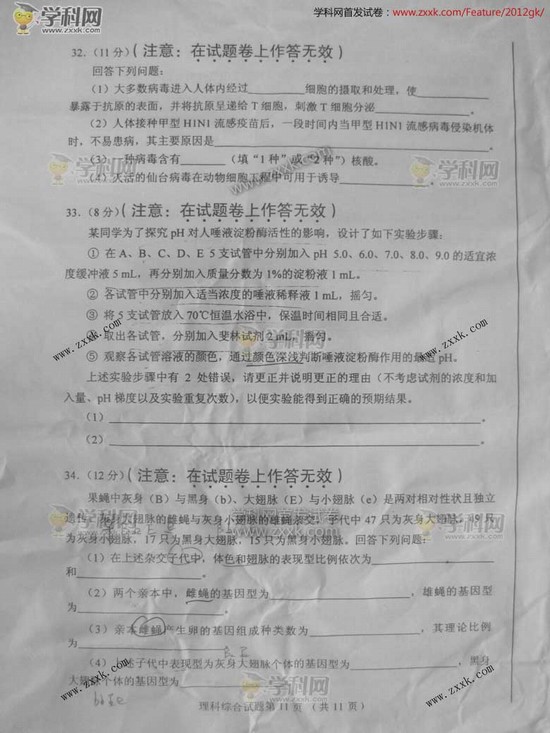 学科网 www.zxxk.com
学科网首发试卷：www.zxxk.com/Feature/2012gk/
32.（11分）（注意：在试题卷上作答无效）
回答下列问题：
（1）大多数病毒进入人体内经过 细胞的摄取和处理，使
暴露于抗原的表面，并将抗原呈递给T细胞，刺激T细胞分泌
（2）人体接种甲型H1N1流感疫苗后，一段时间内当甲型H1N1流感病毒侵染机体
时，不易患病，其主要原因是
（3）一种病毒含有 （填“1种”或“2种”）核酸。
（4）灭活的仙台病毒在动物细胞工程中可用于诱导
33.（8分）（注意：在试题卷上作答无效）
某同学为了探究pH对人唾液淀粉酶活性的影响，设计了如下实验步骤：
① 在A、B、C、D、E 5支试管中分别加入pH 5.0、6.0、7.0、8.0、9.0的适宜浓
度缓冲液5 mL，再分别加入质量分数为1%的淀粉液1 mL。
② 各试管中分别加入适当浓度的唾液稀释液1 mL，摇匀。
③ 将5支试管放入70℃恒温水浴中，保温时间相同且合适。
④ 取出各试管，分别加入斐林试剂2 mL，摇匀。
⑤ 观察各试管溶液的颜色，通过颜色深浅判断唾液淀粉酶作用的最适pH。
上述实验步骤中有2处错误，请更正并说明更正的理由（不考虑试剂的浓度和加
入量、pH梯度以及实验重复次数），以便实验能得到正确的预期结果。
（1）
（2）
34.（12分）（注意：在试题卷上作答无效）
果蝇中灰身（B）与黑身（b）、大翅脉（E）与小翅脉（e）是两对相对性状且独立
遗传，灰身大翅脉的雌蝇与灰身小翅脉的雄蝇杂交，子代中47只为灰身大翅脉，49只
为灰身小翅脉，17只为黑身大翅脉，15只为黑身小翅脉。回答下列问题：
（1）在上述杂交子代中，体色和翅脉的表现型比例依次为
和
（2）两个亲本中，雌蝇的基因型为 ，雄蝇的基因型
为
（3）亲本雌蝇产生卵的基因组成种类数为 ，其理论比例
为
（4）上述子代中表现型为灰身大翅脉个体的基因型为 ，黑身
大翅脉个体的基因型为
理科综合试题第11页 （共11页）